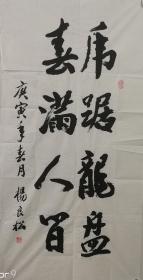 虎踞龍盘
春滿人间
庚寅年春月 楊良松